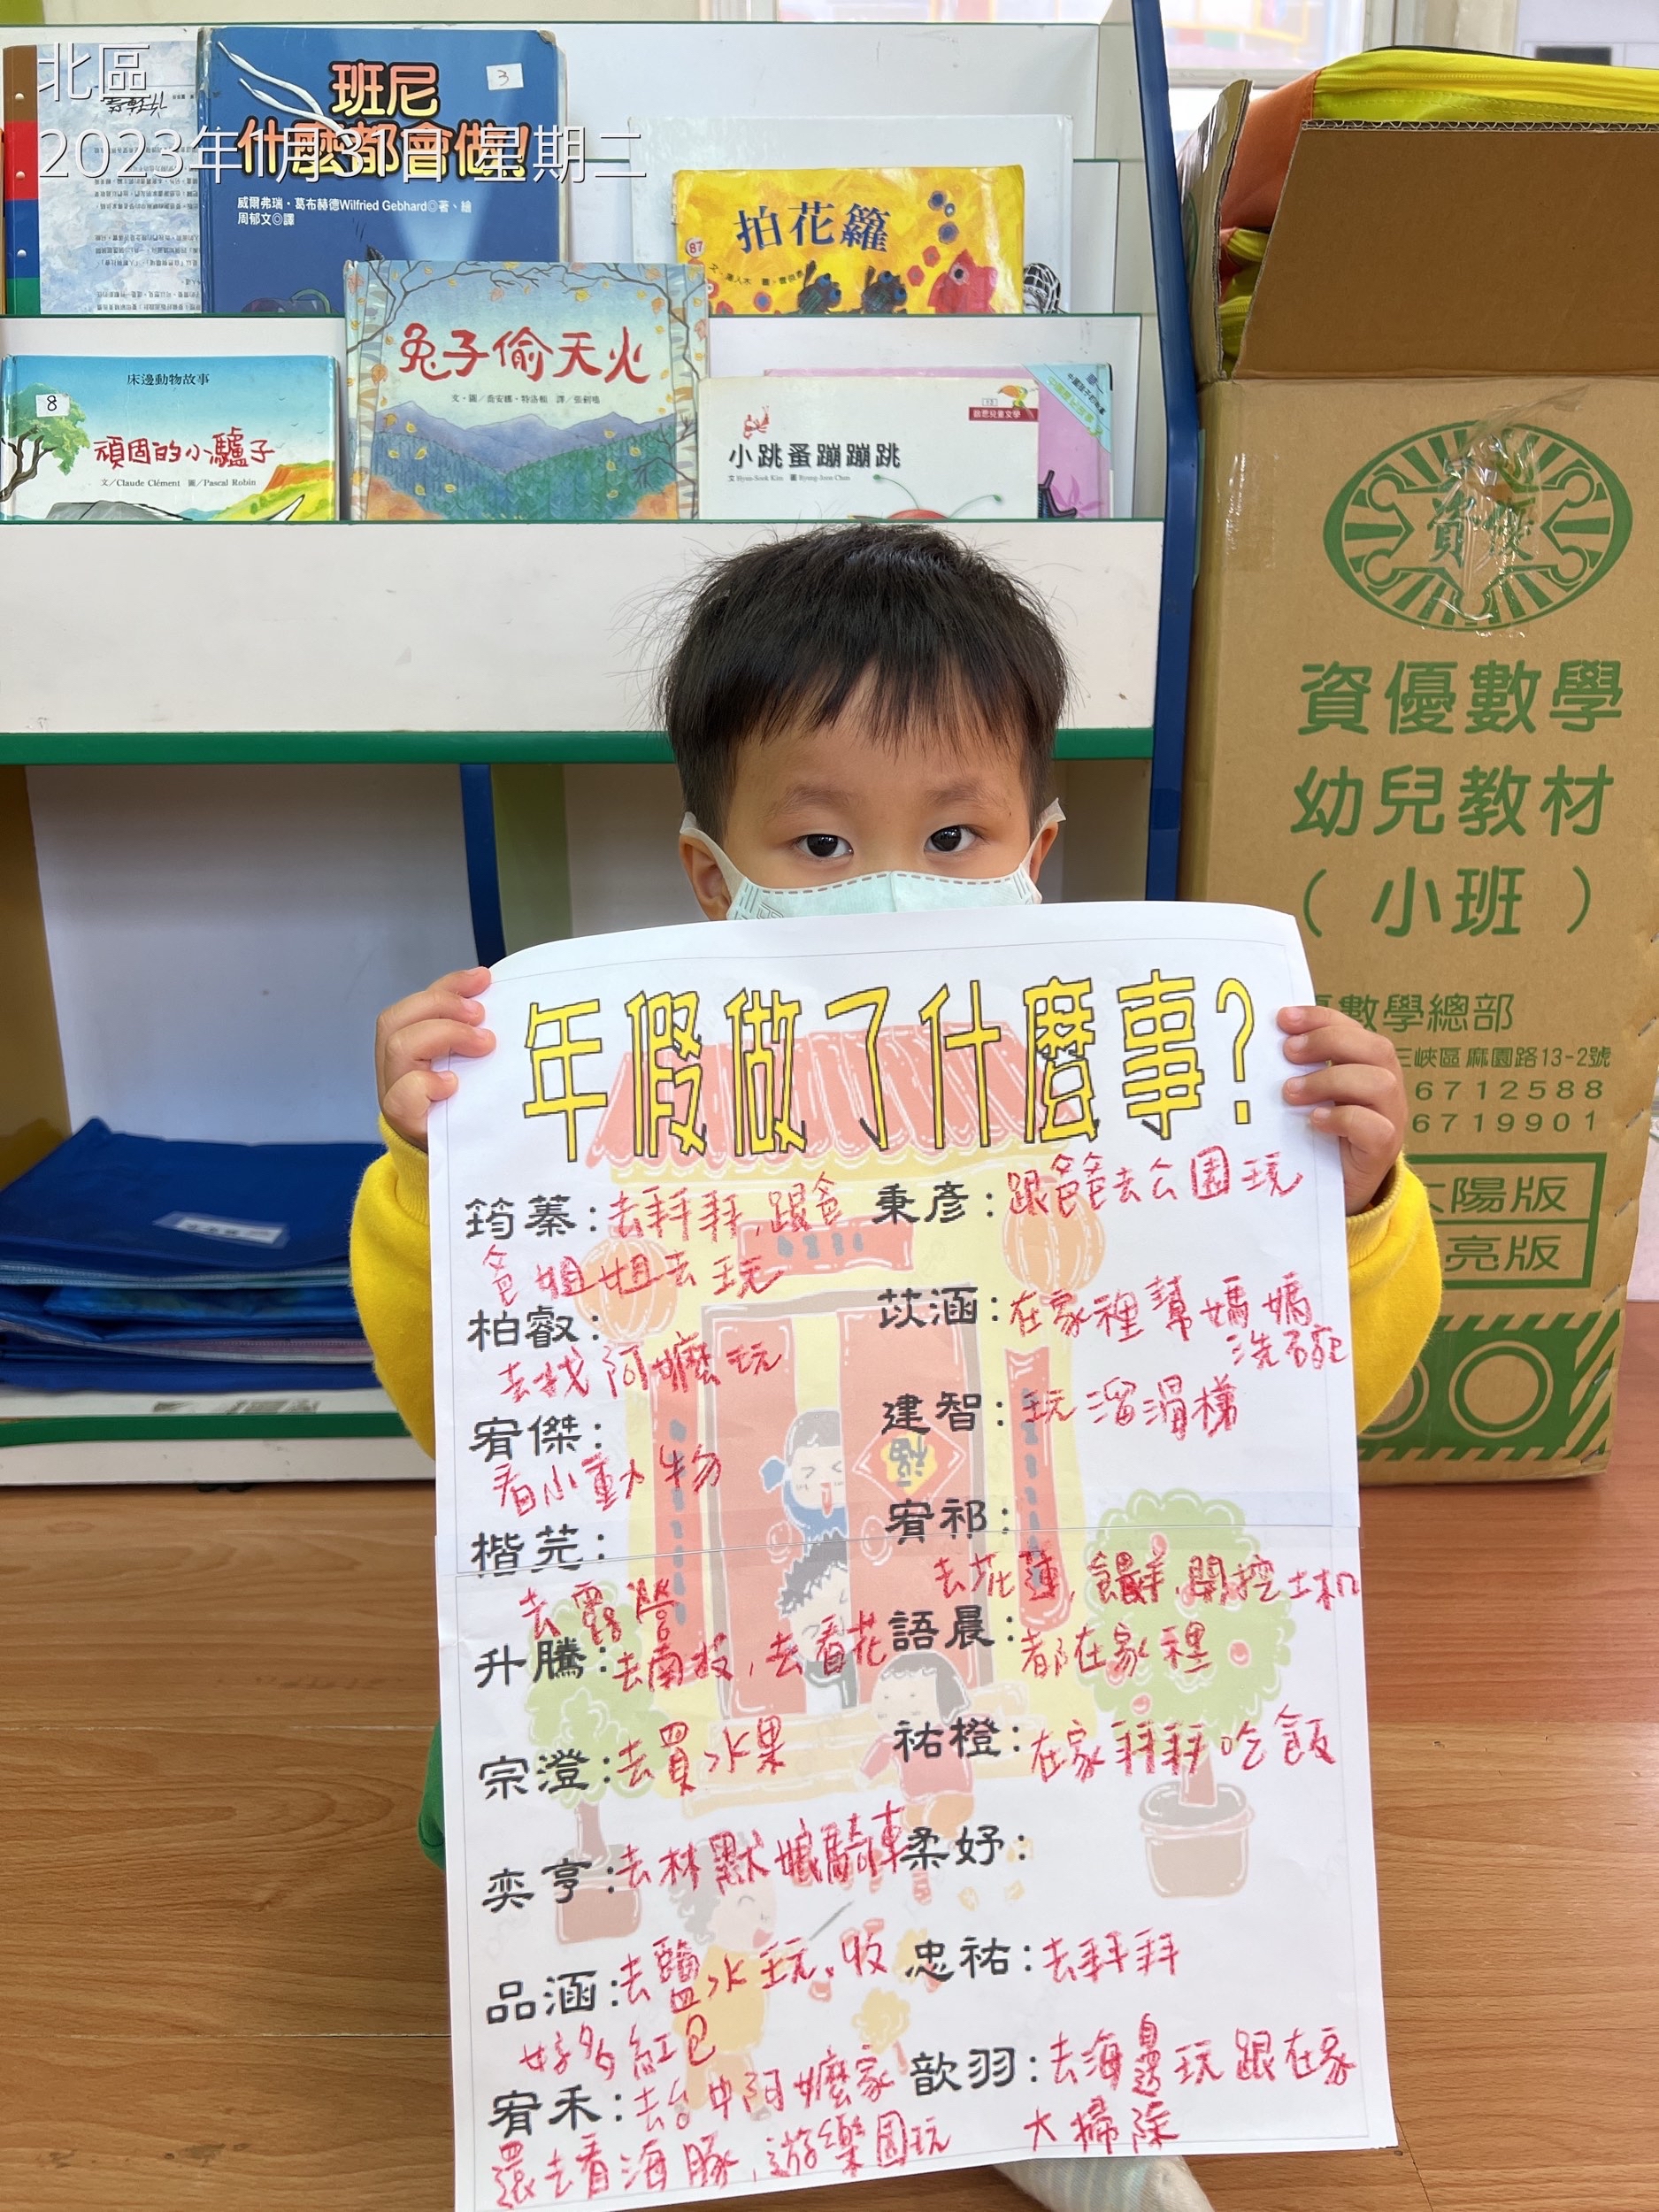 北區
2023年1月31日 星期二
班尼
什麼都會做!
3
威爾弗瑞・葛布赫德Wilfried Gebhard◎著、繪
周郁文◎譯
拍花籮
87
兔子偷天火
文・圖/喬安娜・特洛頓 譯/張劍鳴
床邊動物故事
8
頑固的小驢子
文/Claude Clément 圖/Pascal Robin
小跳蚤蹦蹦跳
文 Hyun-Sook Kim 圖 Byung-Joon Chun
資優數學
幼兒教材
(小班)
優數學總部
三峽區麻園路13-2號
6712588
6719901
太陽版
亮版
年假做了什麼事?
筠蓁:去拜拜,跟爸
爸姐姐去玩
柏叡:
去找阿嬤玩
宥傑:
看小動物
楷芫:
去露營
升騰:去南投,去看花
宗澄:去買水果
奕亨:去林默娘騎車
品涵:去鹽水玩。收
好多紅包
宥禾:去台中阿嬤家
還去看海豚,遊樂園玩
秉彥:跟爸爸去公園玩
苡涵:在家裡幫媽媽
洗碗
建智:玩溜滑梯
宥祁:
去花蓮,餵羊,開挖土机
語晨:都在家裡
祐橙:在家拜拜吃飯
柔妤:
忠祐:去拜拜
歆羽:去海邊玩跟在家
大掃除